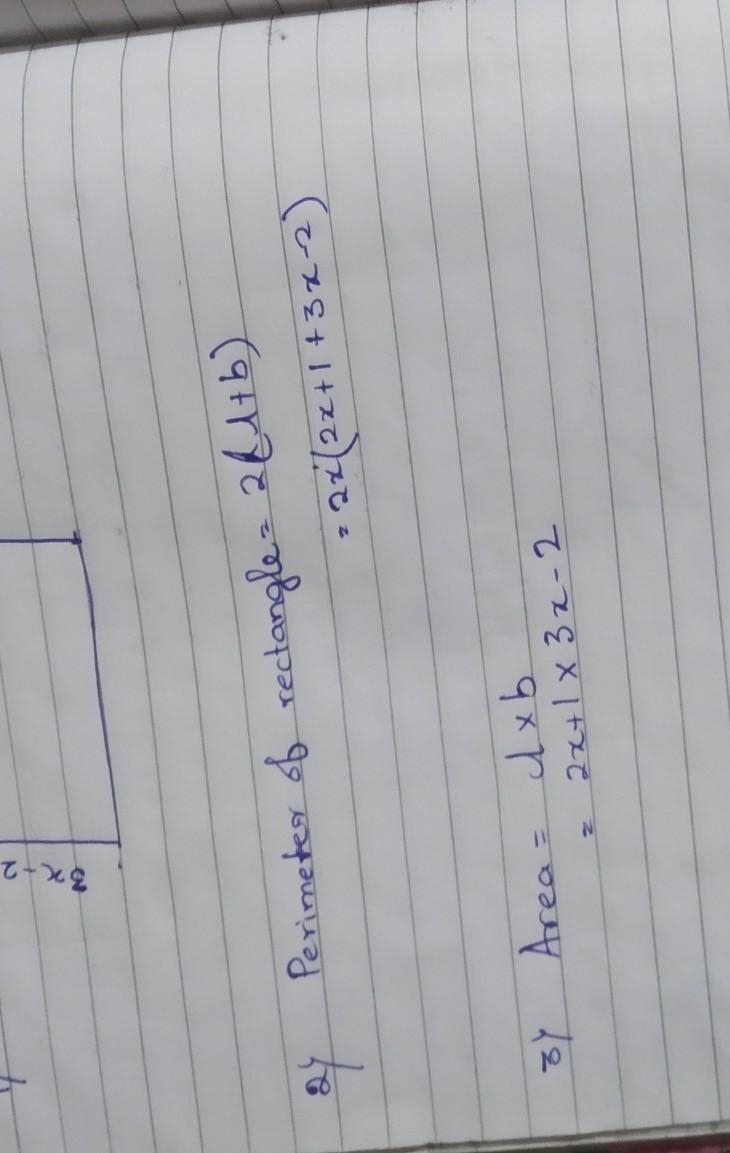 3x-2
2) Perimeter of rectangle = 2(l+b)
= 2x(2x+1+3x-2)
3) Area = l x b
= 2x+1 x 3x-2